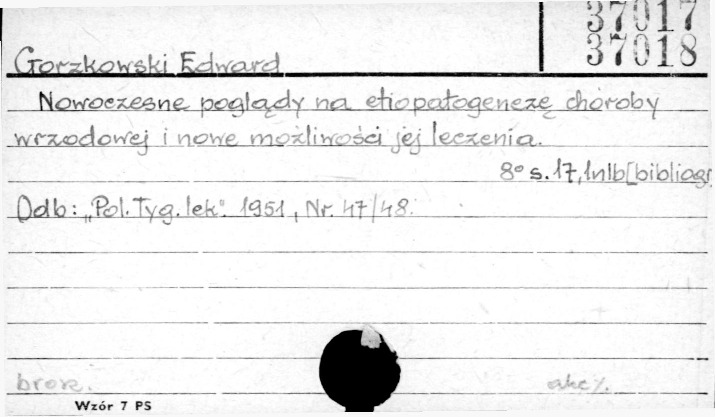 37017
37018
Gorzkowski Edward
Nowoczesne poglądy na etiopatogenezę choroby
wrzodowej i nowe możliwości jej leczenia.
8° s. 17, 1nlb [bibliogr
Odb: „Pol. Tyg. lek". 1951, Nr. 47/48.
brosz.
Wzór 7 PS